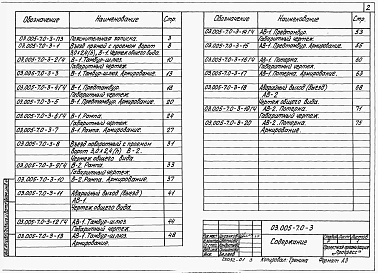 2
Обозначение Наименование Стр.
03.005-7.0-3-ПЗ Пояснительная записка. 3
03.005-7.0-3-1 Въезд прямой с проемом ворот 8
3,0х2,4(h), В-1. Чертеж общего вида.
03.005-7.0-3-2ГЧ В-1. Тамбур-шлюз. 10
Габаритный чертеж.
03.005-7.0-3-3 В-1. Тамбур-шлюз. Армирование. 13
В-1. Предтамбур. 18
Габаритный чертеж.
В-1. Предтамбур. Армирование. 20
В-1. Рампа. 24
Габаритный чертеж.
В-1. Рампа. Армирование. 27
03.005-7.0-3-8 Въезд поворотный с проемом 31
ворот 3,0х2,4(h) В-2.
Чертеж общего вида.
03.005-7.0-3-9ГЧ В-2. Рампа. 33
Габаритный чертеж.
03.005-7.0-3-10 В-2. Рампа. Армирование. 37
03.005-7.0-3-11 Аварийный выход (въезд) 41
АВ-1.
Чертеж общего вида.
03.005-7.0-3-12ГЧ АВ-1. Тамбур-шлюз. 44
Габаритный чертеж.
03.005-7.0-3-13 АВ-1. Тамбур-шлюз. 48
Армирование.
Обозначение Наименование Стр.
03.005-7.0-3-14ГЧ АВ-1. Предтамбур. 53
Габаритный чертеж.
03.005-7.0-3-15 АВ-1. Предтамбур. Армирование. 56
03.005-7.0-3-16ГЧ АВ-1. Потерна. 60
Габаритный чертеж.
03.005-7.0-3-17 АВ-1. Потерна. Армирование. 63
03.005-7.0-3-18 Аварийный выход (въезд) 68
АВ-2.
Чертеж общего вида.
03.005-7.0-3-19ГЧ АВ-2. Потерна. 71
Габаритный чертеж.
03.005-7.0-3-20 АВ-2. Потерна. 75
Армирование.
03.005-7.0-3
Содержание
Стадия Лист Листов
Проектная организация
Копировал Гренина Формат А3